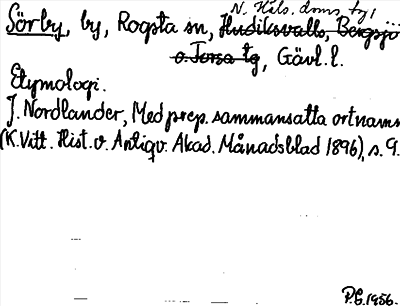 N. Häls. doms. tg, ...
Sörby, by, Rogsta sn, Hudiksvalls, Bergsjö
o. Forsa tg, Gävl. l.
Etymologi.
J. Nordlander, Med prep. sammansatta ortnamn
(K. Vitt. Hist. o. Antiqv. Akad. Månadsblad 1896), s. 9.
P.G. 1956.